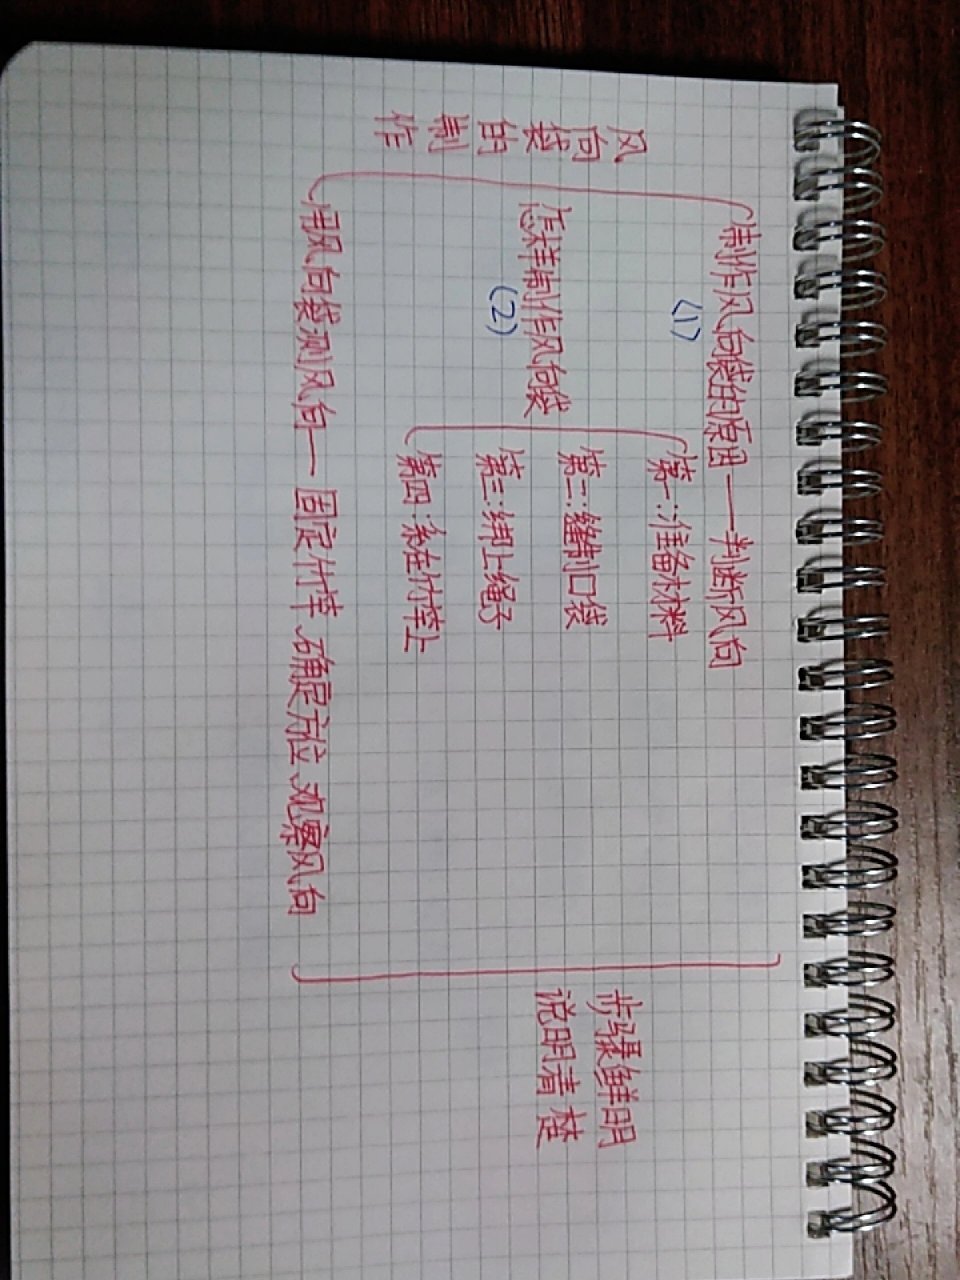 风向袋的制作
制作风向袋的原因——判断风向
(1)
怎样制作风向袋
(2)
第一:准备材料
第二:缝制口袋
第三:绑上绳子
第四:系在竹竿上
用风向袋测风向—固定竹竿、确定方位、观察风向
步骤鲜明
说明清楚